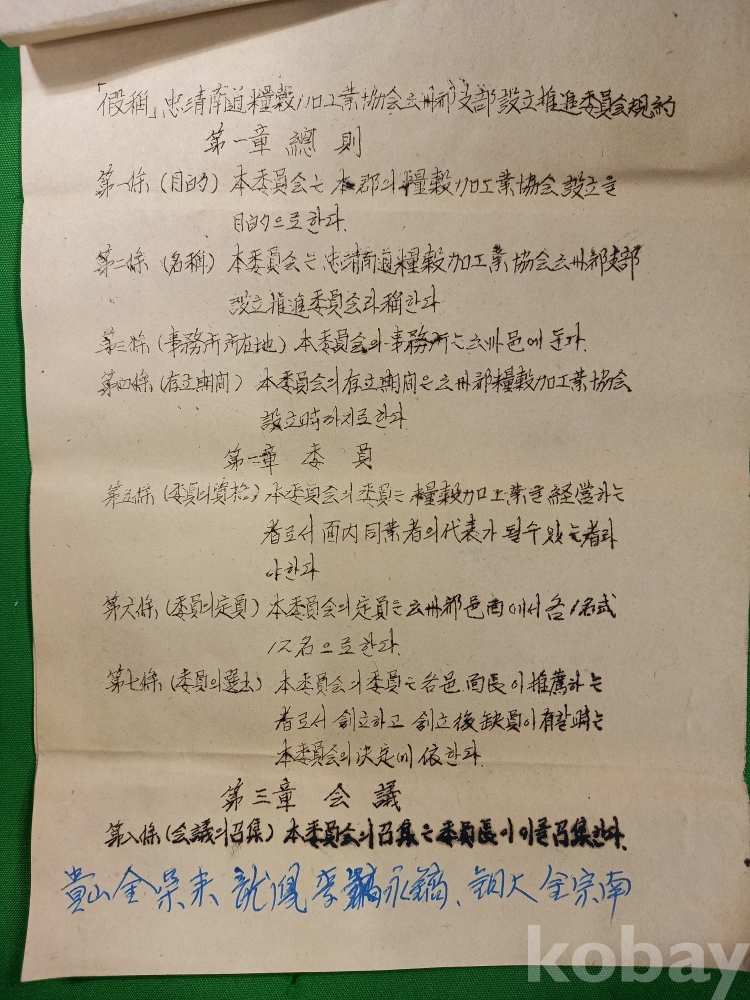 「假稱」忠淸南道糧穀加工業協会公州郡支部設立推進委員会規約
第一章 總則
第一條 (目的) 本委員会는 本郡의 糧穀加工業協会設立을
目的으로한다.
第二條 (名稱) 本委員会는 忠淸南道糧穀加工業協会公州郡支部
設立推進委員会라稱한다
第三條 (事務所所在地) 本委員会의 事務所는 公州邑에 둔다.
第四條 (存立期间) 本委員会의 存立期间은 公州郡糧穀加工業協会
設立時까지로한다
第二章 委員
第五條 (委員의資格) 本委員会의 委員은 糧穀加工業을 経営하는
者로서 面内同業者의代表가 될수있는者라
야한다
第六條 (委員의定員) 本委員会의定員은 公州郡邑面에서 各1名式
12名으로한다.
第七條 (委員의選出) 本委員会의委員은各邑面長이推薦하는
者로서 創立하고 創立後缺員이有할時는
本委員会의 決定에 依한다.
第三章 会議
第八條 (会議의召集) 本委員会의召集은委員長이 이를召集한다.
金 龍鳳 李 永鎬、 金宗南